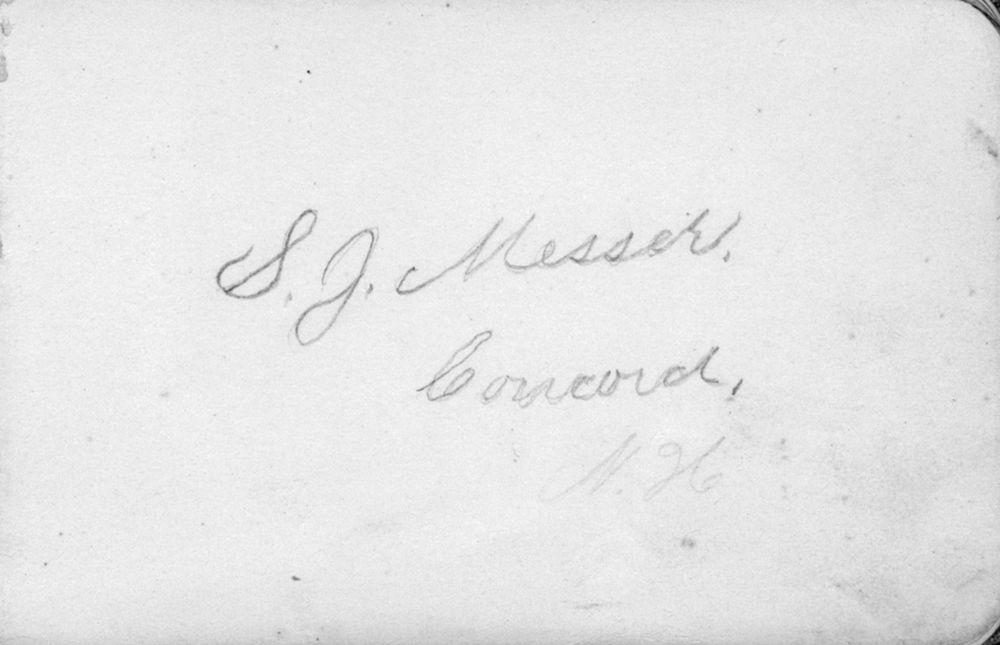 S. J. Messer.
Concord,
N. H.